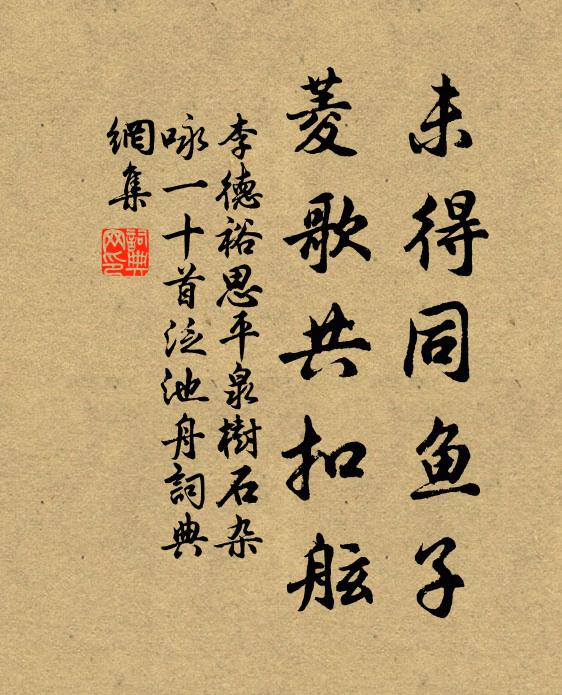 未得同鱼子
菱歌共扣舷
李德裕思平泉樹石杂
咏一十首泛池舟詞典
網集
詞典网印